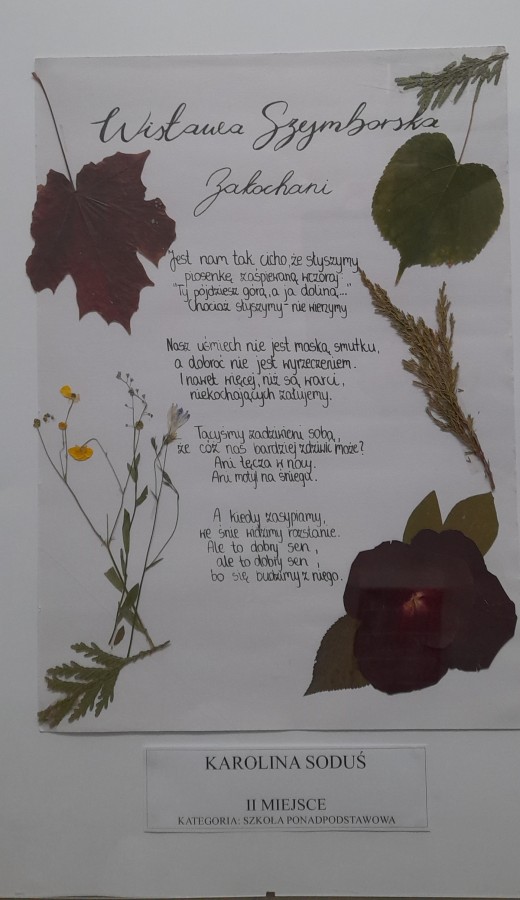 Wisława Szymborska
Zakochani
Jest nam tak cicho, że słyszymy
piosenkę zaśpiewaną wczoraj:
"Ty pójdziesz górą, a ja doliną..."
Chociaż słyszymy - nie wierzymy
Nasz uśmiech nie jest maską smutku,
a dobroć nie jest wyrzeczeniem.
I nawet więcej, niż są warci,
niekochających żałujemy.
Tacyśmy zadziwieni sobą,
że cóż nas bardziej zdziwić może?
Ani tęcza w nocy.
Ani motyl na śniegu.
A kiedy zasypiamy,
we śnie widzimy rozstanie.
Ale to dobry sen,
ale to dobry sen,
bo się budzimy z niego.
KAROLINA SODUŚ
II MIEJSCE
KATEGORIA: SZKOŁA PONADPODSTAWOWA